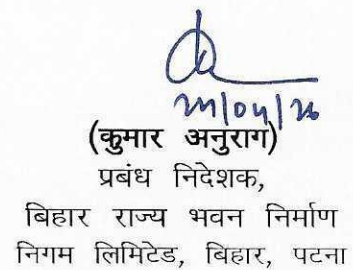 (कुमार अनुराग)
प्रबंध निदेशक,
बिहार राज्य भवन निर्माण
निगम लिमिटेड, बिहार, पटना